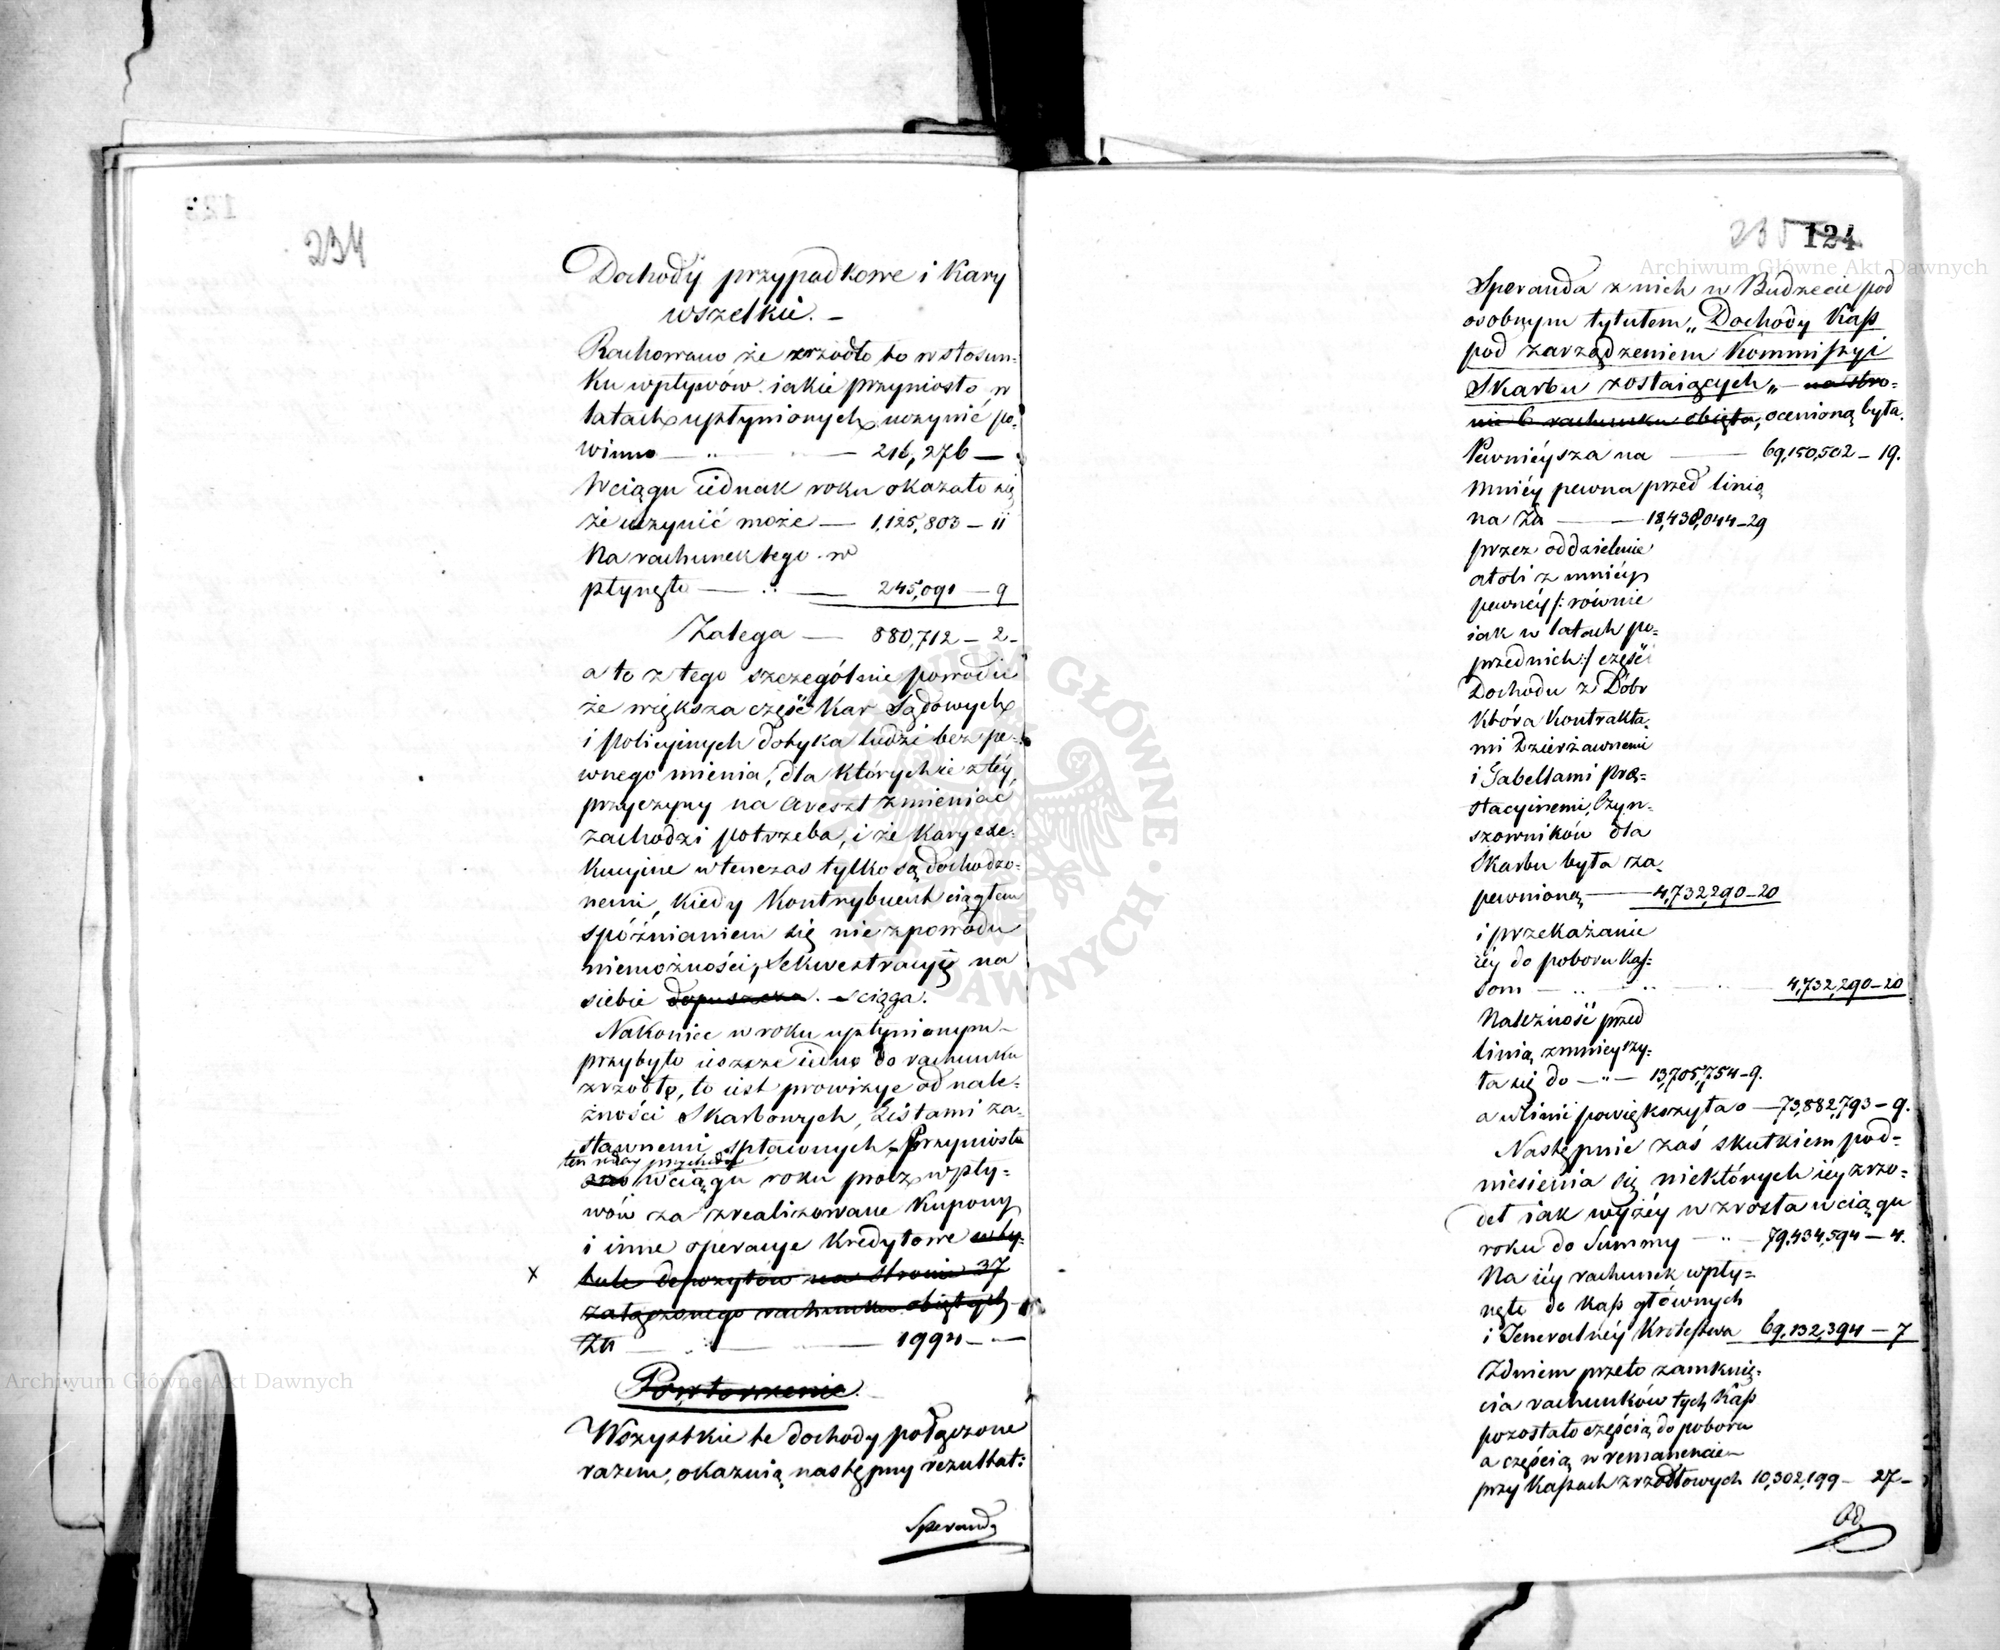 234
Dochody przypadkowe i Kary
wszelkie. –
Rachowano że zrzódło to w stosun-
ku wpływów iakie przyniosło, w
latach upłynionych, uczynić po-
winno — " — 216,276 —
W ciągu iednak roku okazało się
że uczynić może — 1,125,803 – 11
Na rachunek tego w
płynęło — " — 245,091 — 9
Zalega — 880,712 – 2 –
a to z tego szczególnie powodu
że większa część Kar Sądowych
i policyinych dotyka ludzi bez pe-
wnego mienia, dla których ie z téy
przyczyny na Areszt zmieniać
zachodzi potrzeba, i że Kary exe-
kucyine wtenczas tylko są dochodzo-
nemi, kiedy Kontrybuent ciągłem
spóźnianiem się nie z powodu
niemożności, Sekwestracyię na
siebie dopuszcza. ściąga.
Nakoniec w roku upłynionym
przybyło ieszcze iedno do rachunku
zrzódło, to iest prowizye od nale-
żności Skarbowych, Listami za-
stawnemi spławnych. Przyniosło
ten rodzay przychodu
ono w ciągu roku prócz wpły-
wów za zrealizowane Kupony
i inne operacye Kredytowe w ty-
x tule depozytów na stronie 37
załączonego rachunku obiętych
Złt — " — 1994 – " –
Powtorzenie.
Wszystkie te dochody połączone
razem, okazuią następny rezultat:
Speranda
235 124
Archiwum Główne Akt Dawnych
Speranda z nich w Budżecie pod
osobnym tytułem „Dochody Kass
pod zarządzeniem Kommissyi
Skarbu zostaiących„ – na stro-
nie 6 rachunku obięta, ocenioną była.
Pewnieysza na — 69,150,502 – 19.
Mniéy pewna przed linią
na Zł — 18,438,044 – 29
przez oddzielenie
atoli z mniéy
pewnéy /: równie
iak w latach po-
przednich :/ części
Dochodu z Dóbr
która Kontrakta-
mi Dzierżawnemi
i Tabellami prę-
stacyinemi, Czyn-
szowników dla
Skarbu była za-
pewnioną — 4,732,290 – 20
i przekazanie
iéy do poboru Kas-
som — " " " — 4,732,290 – 20
Należność przed
linią zmnieyszy-
ła się do — " — 13,705,754 – 9.
a w linii powiększyła o — 73,882,793 – 9.
Następnie zaś skutkiem pod-
niesienia się niektórych iéy zrzó-
deł iak wyżéy wzrosła w ciągu
roku do Summy — " — 79,434,594 – 4.
Na iéy rachunek wpły-
nęło do Kass głównych
i Jeneralnéy Królestwa 69,132,394 – 7
Z dniem przeto zamknię-
cia rachunków tych Kass
pozostało częścią do poboru
a częścią w remanencie
przy Kassach zrzódłowych 10,302,199 – 27 –
Od
ARCHIWUM GŁÓWNE AKT DAWNYCH
Archiwum Główne Akt Dawnych